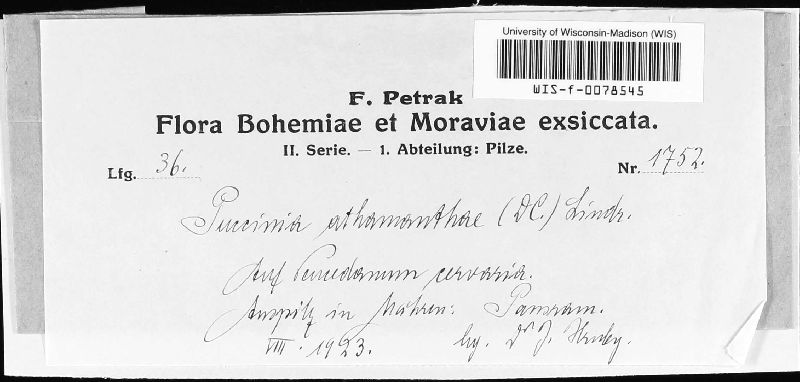 University of Wisconsin-Madison (WIS)
WIS-f-0078545
F. Petrak
Flora Bohemiae et Moraviae exsiccata.
II. Serie. — 1. Abteilung: Pilze.
Lfg. 36.
Nr. 1752.
Puccinia athamanthae (DC.) Lindr.
Auf Peucedanum cervaria.
Auspitz in Mähren: Pausram.
VIII. 1923. lg. Dr J. Hruby.